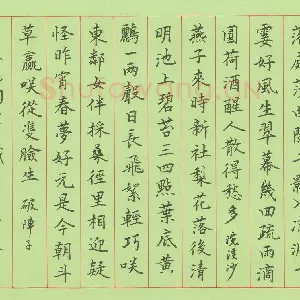 落庭莎曲闌干影入涼波
霎好風生翠幕幾回疏雨滴
圓荷酒醒人散得愁多 浣溪沙
燕子來時新社梨花落後清
明池上碧苔三四點葉底黃
鸝一兩聲日長飛絮輕巧咲
東鄰女伴採桑徑里相迎疑
怪昨宵春夢好元是今朝斗
草贏咲從雙臉生 破陣子